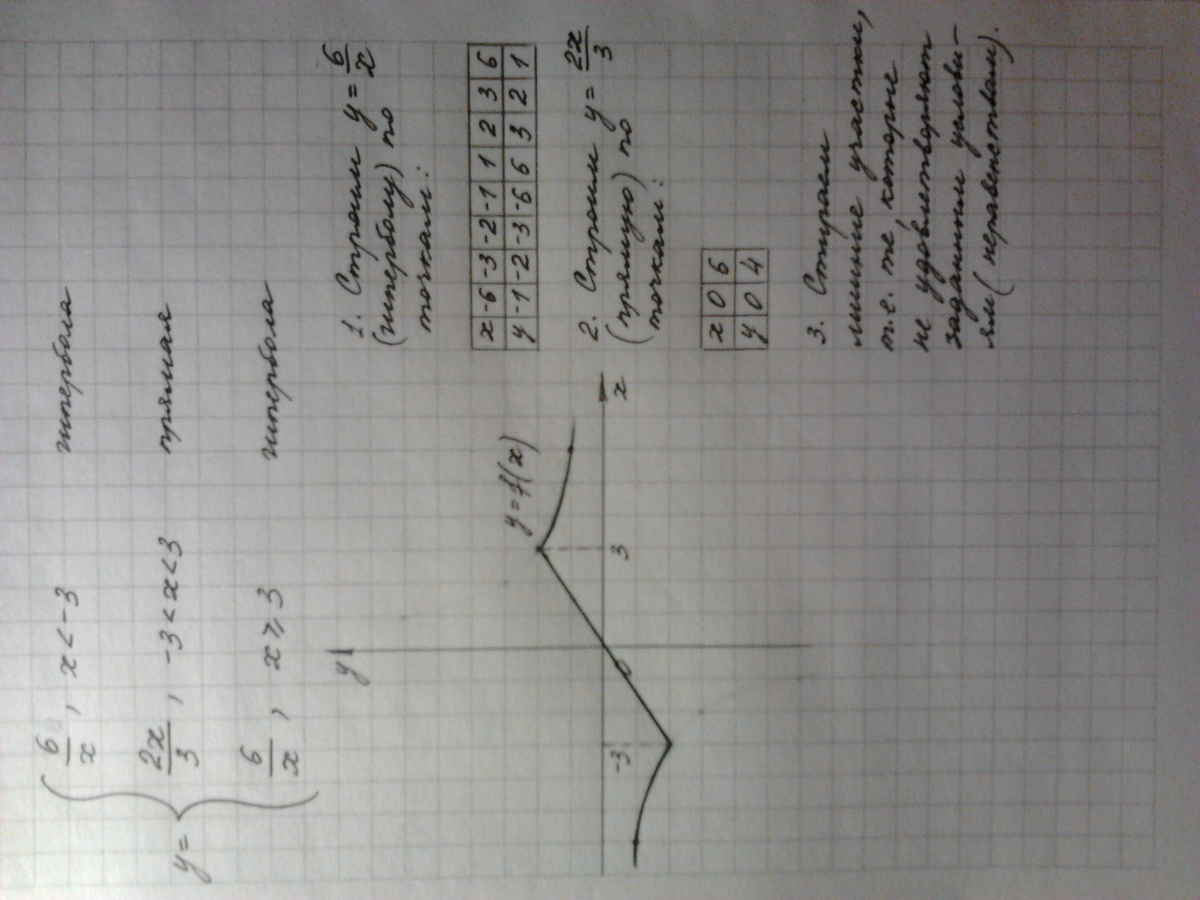 y = { 6/x , x < -3 гипербола
2x/3 , -3 < x < 3 прямая
6/x , x ⩾ 3 гипербола
y
y = f(x)
-3 0 3 x
1. Строим y = 6/x
(гиперболу) по
точкам:
x -6 -3 -2 -1 1 2 3 6
y -1 -2 -3 -6 6 3 2 1
2. Строим y = 2x/3
(прямую) по
точкам:
x 0 6
y 0 4
3. Стираем
лишние участки,
т.е. те, которые
не удовлетворяют
заданным услови-
ям (неравенствам).